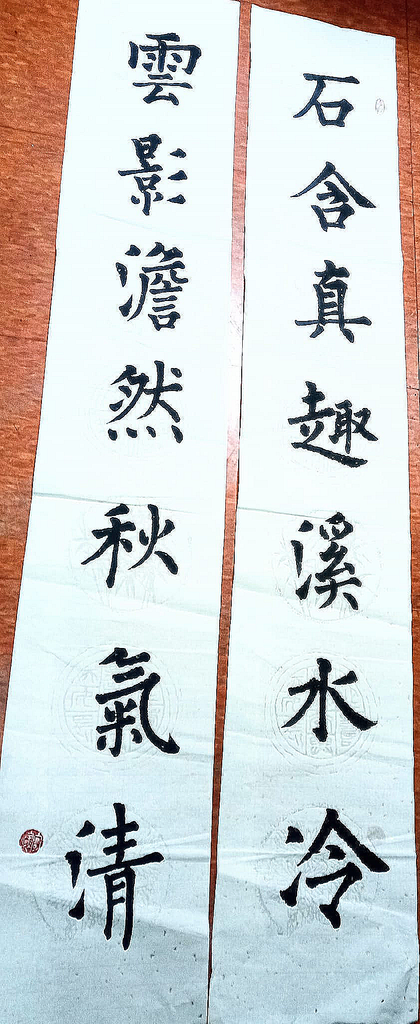 石含真趣溪水冷
雲影澹然秋氣清